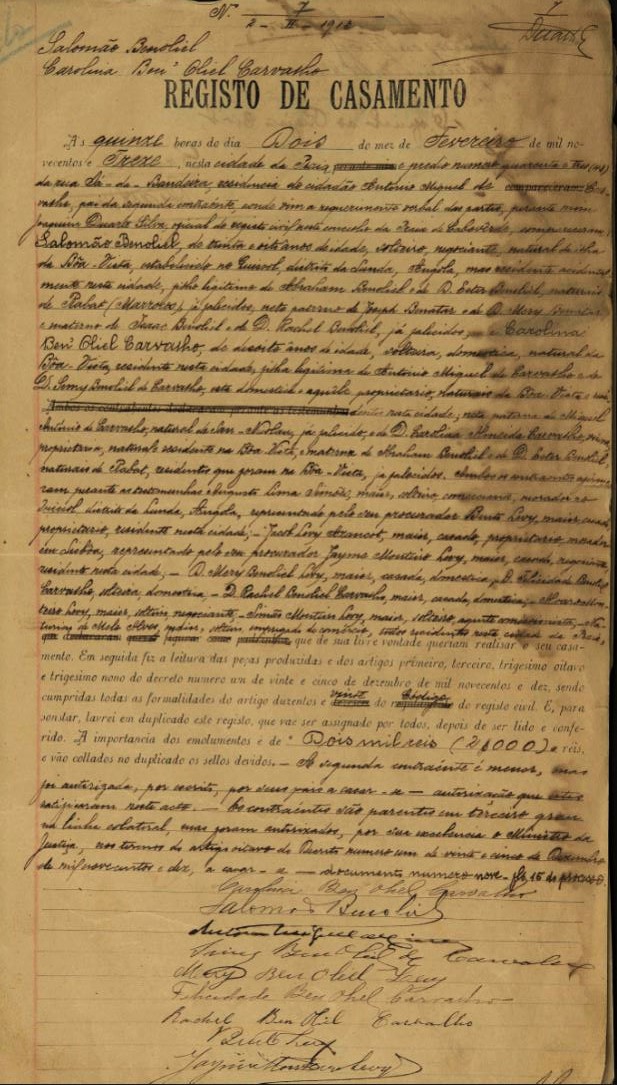 N. 7
2 - II - 1913
7
Duarte
Salomão Benoliel
Carolina Ben' Oliel Carvalho
REGISTO DE CASAMENTO
A's quinze horas do dia Dois do mez de Fevereiro de mil no-
vecentos e Treze, nesta cidade da Praia, e predio numero quarenta e tres (43)
da rua Sá-da-Bandeira, residencia do cidadão António Miguel de Car-
valho, pai da segunda contraente, aonde vim a requerimento verbal das partes, perante mim
Joaquim Duarte Silva, oficial do registo civil neste concelho da Praia de Caboverde, compareceram:
Salomão Benoliel, de trinta e oito anos de idade, solteiro, negociante, natural da ilha
da Bôa-Vista, estabelecido no Cuilo, distrito da Lunda, Angola, mas residente acidental-
mente nesta cidade, filho legitimo de Abraham Benoliel e de D. Ester Benoliel, naturais
de Rabat (Marrocos), já falecidos, neto paterno de Joseph Benatar e de D. Mery Benatar
e materno de Isaac Benoliel e de D. Rachel Benoliel, já falecidos, e Carolina
Ben' Oliel Carvalho, de desoito anos de idade, solteira, domestica, natural da
Bôa-Vista, residente nesta cidade, filha legitima de António Miguel de Carvalho e de
D. Simy Benoliel de Carvalho, esta domestica e aquêle proprietario, naturais da Bôa Vista e resi-
dentes nesta cidade; neta paterna de Miguel
António de Carvalho, natural de San-Nicolau, já falecido, e de D. Carolina Almeida Carvalho, viuva,
proprietaria, natural e residente na Bôa-Vista, e materna de Abraham Benoliel e de D. Ester Benoliel,
naturais de Rabat, residentes que foram na Bôa-Vista, já falecidos. Ambos os contraentes afirma-
ram perante as testemunhas Augusto Lima, maior, solteiro, comerciante, morador no
distrito da Lunda, Angola, representado pelo seu procurador Bento Levy, maior, casado,
proprietario, residente nesta cidade; - Jacob Levy Azancot, maior, casado, proprietario, morador
em Lisbôa, representado pelo seu procurador Jayme Monteiro Levy, maior, casado,
residente nesta cidade; - D. Mery Benoliel Levy, maior, casada, domestica; D. Felicidade Benoliel
Carvalho, solteira, domestica; - D. Rachel Benoliel Carvalho, maior, casada, domestica; - Alvaro Mon-
teiro Levy, maior, solteiro, negociante; - Monteiro Levy, maior, solteiro,
de Melo Alves, maior, solteiro, empregado de comércio, todos residentes nesta cidade da Praia,
que de sua livre vontade queriam realisar o seu casa-
mento. Em seguida fiz a leitura das peças produzidas e dos artigos primeiro, terceiro, trigesimo oitavo
e trigesimo nono do decreto numero um de vinte e cinco de dezembro de mil novecentos e dez, sendo
cumpridas todas as formalidades do artigo duzentos e vinte do Código do registo civil. E, para
constar, lavrei em duplicado este registo, que vae ser assignado por todos, depois de ser lido e confe-
rido. A importancia dos emolumentos é de Dois mil reis (2$000) reis,
e vão collados no duplicado os sellos devidos. - A segunda contraente é menor, mas
foi autorizada, por escrito, por seus pais a casar-se - autorização que estes
ratificaram neste acto. - Os contraentes são parentes em terceiro grau
na linha colateral, mas foram autorizados, por sua excelencia o Ministro da
Justiça, nos termos do artigo oitavo do Decreto numero um de vinte e cinco de Dezembro
de mil novecentos e dez, a casar-se - documento numero nove - fls 15 do processo.
Carolina Ben Oliel Carvalho
Salomão Benoliel
António Miguel de Carvalho
Simy Ben Oliel de Carvalho
Mery Ben Oliel Levy
Felicidade Ben Oliel Carvalho
Rachel Ben Oliel Carvalho
Bento Levy
Jayme Monteiro Levy